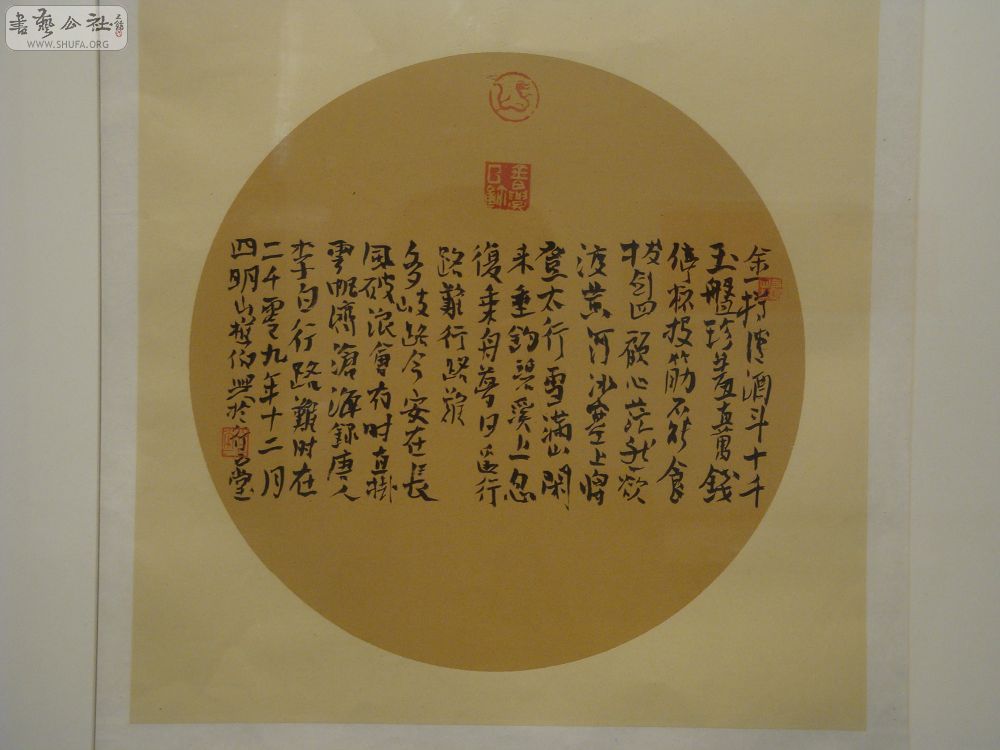 書藝公社
WWW.SHUFA.ORG
金樽清酒斗十千
玉盤珍羞直萬錢
停杯投筯不能食
拔剑四顧心茫然欲
渡黄河冰塞川將
登太行雪滿山閑
来垂釣碧溪上忽
復乘舟夢日邊行
路難行路難
多岐路今安在長
風破浪會有时直掛
雲帆濟滄海録唐人
李白行路難时在
二千零九年十二月
四明山伯於堂